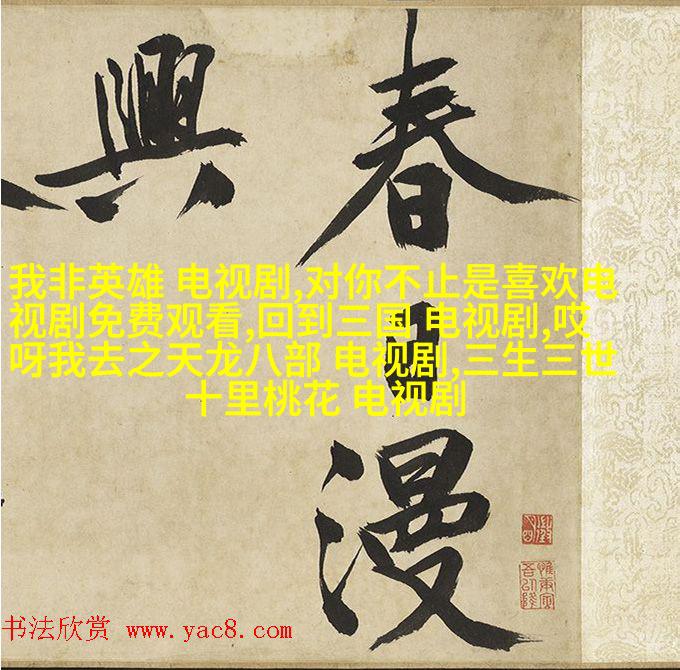 春日漫
興
我非英雄 电视剧,对你不止是喜欢电
视剧免费观看,回到三国 电视剧,哎
呀我去之天龙八部 电视剧,三生三世
十里桃花 电视剧
书法欣赏 www.yac8.com